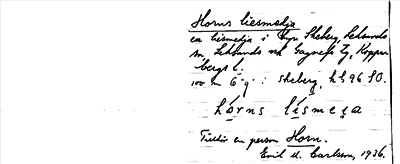 Horns liesmedja
en liesmedja i byn Skeberg, Leksands
sn Leksands och Gagnefs tg, Koppar
bergs l.
100 m G g. : Skeberg, hh 96 SO.
hórns lìsmeɿa
Tillhör en person Horn.
Emil A. Carlsson, 1936.